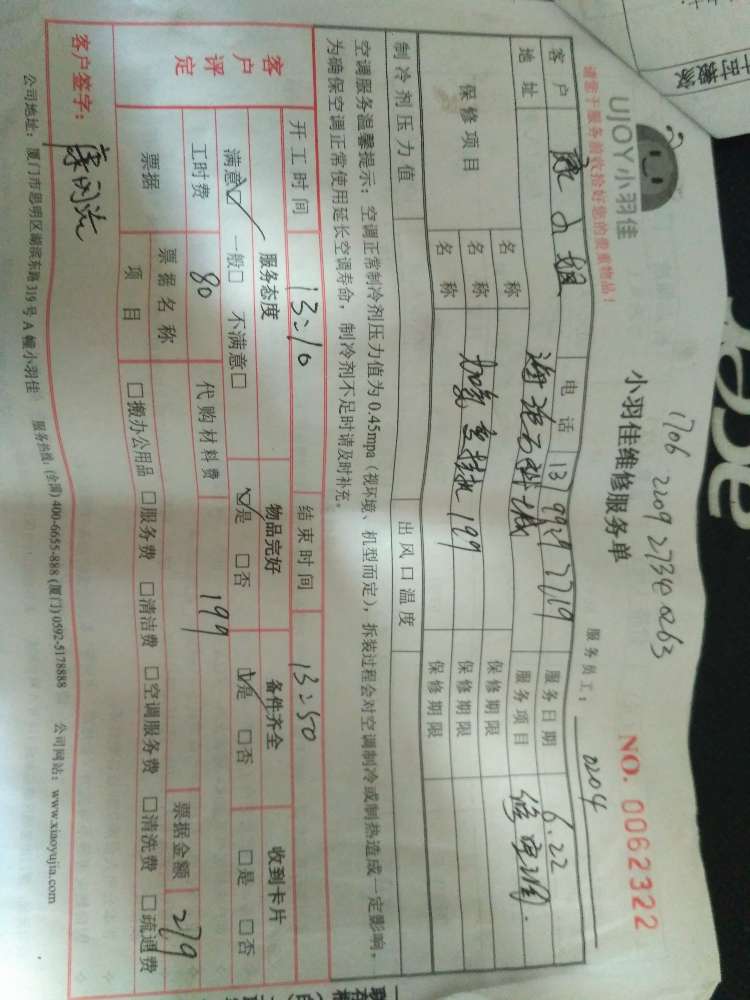 UJOY小羽佳
1706 2209 2734 0263
小羽佳维修服务单
NO. 0062322
请您于服务前收拾好您的贵重物品!
服务员工: 0204
客户 电话 服务日期 6.22
地址 服务项目
保修项目 名称 保修期限
名称 199 保修期限
名称 保修期限
制冷剂压力值 出风口温度
空调服务温馨提示:空调正常制冷剂压力值为0.45mpa(视环境、机型而定),拆装过程会对空调制冷或制热造成一定影响,
为确保空调正常使用延长空调寿命,制冷剂不足时请及时补充。
开工时间 13:10 结束时间 13:50
客户评定 服务态度 物品完好 备件齐全 收到卡片
满意☑ 一般□ 不满意□ ☑是 □否 ☑是 □否 □是 □否
工时费 80 代购材料费 199 票据金额 279
票据 票据名称
项目 □搬办公用品 □服务费 □清洁费 □空调服务费 □清洗费 □疏通费
客户签字:
公司地址:厦门市思明区湖滨东路319号A幢小羽佳 服务热线:(全国)400-6655-888 (厦门)0592-5178888 公司网站:www.xiaoyujia.com